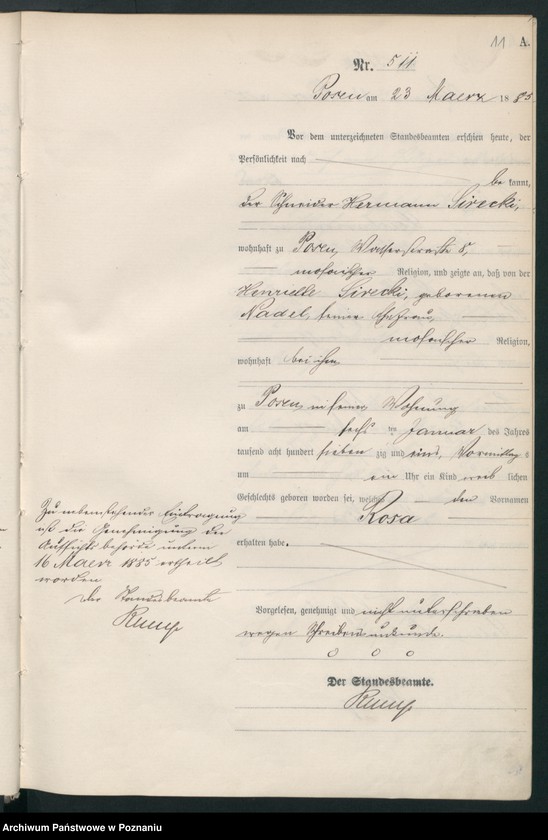 11 A.
Nr. 511
Posen am 23 Maerz 1885
Vor dem unterzeichneten Standesbeamten erschien heute, der
Persönlichkeit nach
be kannt,
der Schneider Hermann Sirecki,
wohnhaft zu Posen, Wasserstraße 8,
mosaischer Religion, und zeigte an, daß von der
Henriette Sirecki, geborenen
Nadel, seiner Ehefrau,
mosaischer Religion,
wohnhaft bei ihm
zu Posen in seiner Wohnung
am sechs ten Januar des Jahres
tausend acht hundert sieben zig und eins, Vormittags
um ein Uhr ein Kind weib lichen
Geschlechts geboren worden sei, welches den Vornamen
Rosa
erhalten habe.
Zu nebenstehender Eintragung
ist die Genehmigung der
Aufsichtsbehörde unterm
16 Maerz 1885 ertheilt
worden
Der Standesbeamte
Vorgelesen, genehmigt und nicht unterschrieben
wegen Schreibensunkunde.
Der Standesbeamte.
Archiwum Państwowe w Poznaniu